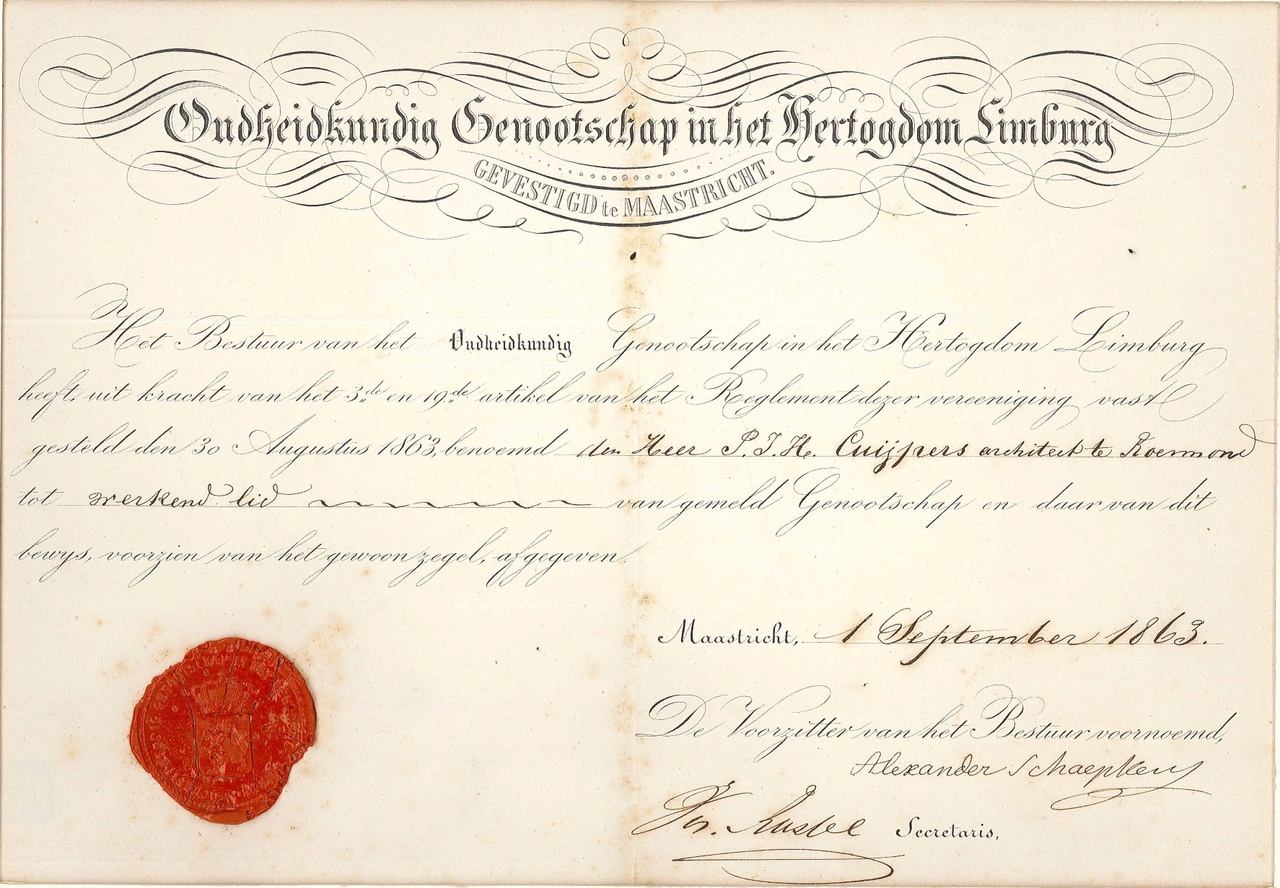 Oudheidkundig Genootschap in het Hertogdom Limburg
GEVESTIGD te MAASTRICHT.
Het Bestuur van het Oudheidkundig Genootschap in het Hertogdom Limburg
heeft, uit kracht van het 3de en 19de artikel van het Reglement dezer vereeniging vast
gesteld den 30 Augustus 1863, benoemd den Heer P. J. H. Cuijpers architect te Roermond
tot werkend lid van gemeld Genootschap en daar van dit
bewys, voorzien van het gewoon zegel, afgegeven.
Maastricht, 1 September 1863.
De Voorzitter van het Bestuur voornoemd,
Alexander Schaepkens
Secretaris,